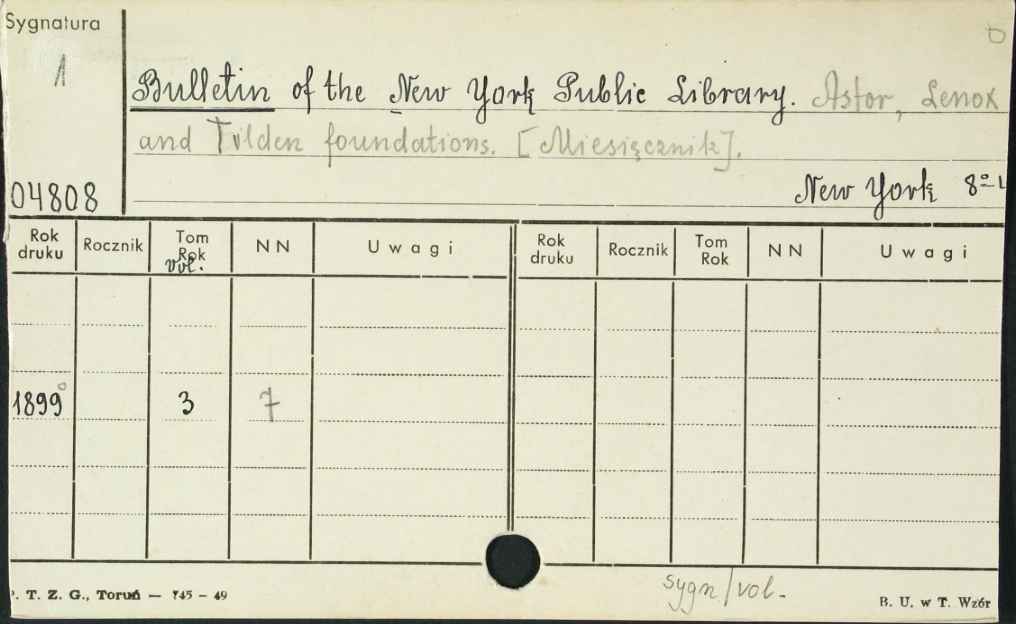 Sygnatura
1
Bulletin of the New York Public Library. Astor, Lenox
and Tilden foundations. [Miesięcznik].
04808 New York 8°
Rok druku Rocznik Tom Rok vol. NN Uwagi Rok druku Rocznik Tom Rok NN Uwagi
1899 3 7
sygn/vol.
. T. Z. G., Toruń — 745 – 49 B. U. w T. Wzór